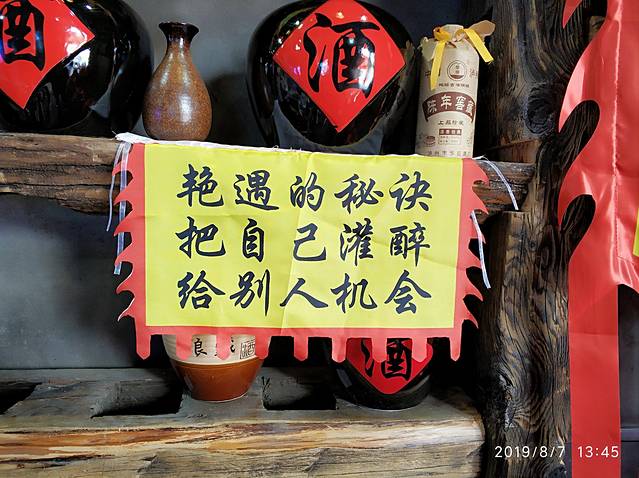 酒
酒
陈年窖藏
艳遇的秘诀
把自己灌醉
给别人机会
酒
2019/8/7 13:45